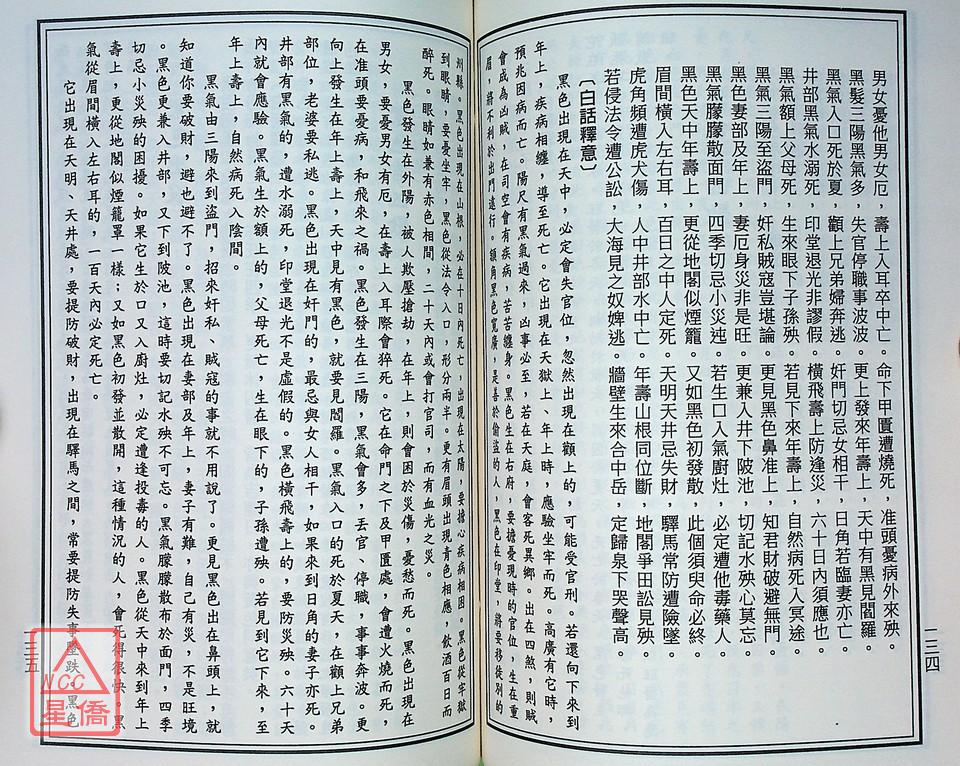 男女憂他男女厄，壽上入耳卒中亡。命下甲匱遭燒死，准頭憂病外來殃。
黑髮三陽黑氣多，失官停職事波波。更上發來年壽上，天中有黑見閻羅。
黑氣入口死於夏，顴上兄弟婦奔逃。奸門切忌女相干，日角若臨妻亦亡。
井部黑氣水溺死，印堂退光非謬假。橫飛壽上防逢災，六十日內須應也。
黑氣額上父母死，生來眼下子孫殃。若見下來年壽上，自然病死入冥途。
黑氣三陽至盜門，奸私賊寇豈堪論。更見黑色鼻准上，知君財破避無門。
黑色妻部及年上，妻厄身災非是旺。更兼入井下陂池，切記水殃心莫忘。
黑氣朦朦散面門，四季切忌小災迍。若生口入氣廚灶，必定遭他毒藥人。
黑色天中年壽上，更從地閣似煙籠。又如黑色初發散，此個須臾命必終。
眉間橫入左右耳，百日之中人定死。天明天井忌失財，驛馬常防遭險墜。
虎角頻遭虎犬傷，人中井部水中亡。年壽山根同位斷，地閣爭田訟見殃。
若侵法令遭公訟，大海見之奴婢逃。牆壁生來合中岳，定歸泉下哭聲高。
〔白話釋意〕
黑色出現在天中，必定會失官位，忽然出現在顴上的，可能受官刑。若還向下來到
年上，疾病相纏，導至死亡。它出現在天獄上、年上時，應驗坐牢而死。高廣有它時，
預兆因病而亡。陽尺有黑氣過來，凶事必至，若在天庭，會客死異鄉。出在四煞，則賊
會成為凶賊，在司空會有疾病，苦苦纏身。黑色生在右府，要擔憂現時的官位，生在重
眉，將不利於出門遠行。額角黑色寬廣，是善於偷盜的人，黑色在印堂，將要移徒別的
州縣。黑色出現在山根，必在十日內死亡，出現在太陽，要擔心疾病相困。黑色從牢獄
到眼睛，要憂坐牢，黑色從法令入口，形分兩半。更有眉頭出現青色相應，飲酒百日而
醉死。眼睛如兼有赤色相間，二十天內或會打官司，而有血光之災。
黑色發生在外陽，被人欺壓搶劫，在年上，則會困於災傷，憂愁而死。黑色出現在
男女，要憂男女有厄，在壽上入耳際會猝死。它在命門之下及甲匱處，會遭火燒而死，
在准頭要憂病，和飛來之禍。黑色發生在三陽，黑氣會多，丟官、停職，事事奔波。更
向上發生在年上壽上，天中見有黑色，就要見閻羅。黑氣入口的死於夏天，在顴上兄弟
部位，老婆要私逃。黑色出現在奸門的，最忌與女人相干，如果來到日角的妻子亦死。
井部有黑氣的，遭水溺死，印堂退光不是虛假的。黑色橫飛壽上的，要防災殃。六十天
內就會應驗。黑氣生於額上的，父母死亡，生在眼下的，子孫遭殃。若見到它下來，至
年上壽上，自然病死入陰間。
黑氣由三陽來到盜門，招來奸私、賊寇的事就不用說了。更見黑色出在鼻頭上，就
知道你要破財，避也避不了。黑色出現在妻部及年上，妻子有難，自己有災，不是旺境
。黑色更兼入井部，又下到陂池，這時要切記水殃不可忘。黑氣朦朦散布於面門，四季
切忌小災殃的困擾。如果它生於口又入廚灶，必定遭逢投毒的人。黑色從天中來到年上
壽上，更從地閣似煙籠罩一樣；又如黑色初發並散開，這種情況的人，會死得很快。黑
氣從眉間橫入左右耳的，一百天內必定死亡。
它出現在天明、天井處，要提防破財，出現在驛馬之間，常要提防失事墜跌。黑色
一三四
一三五
WCC
星僑